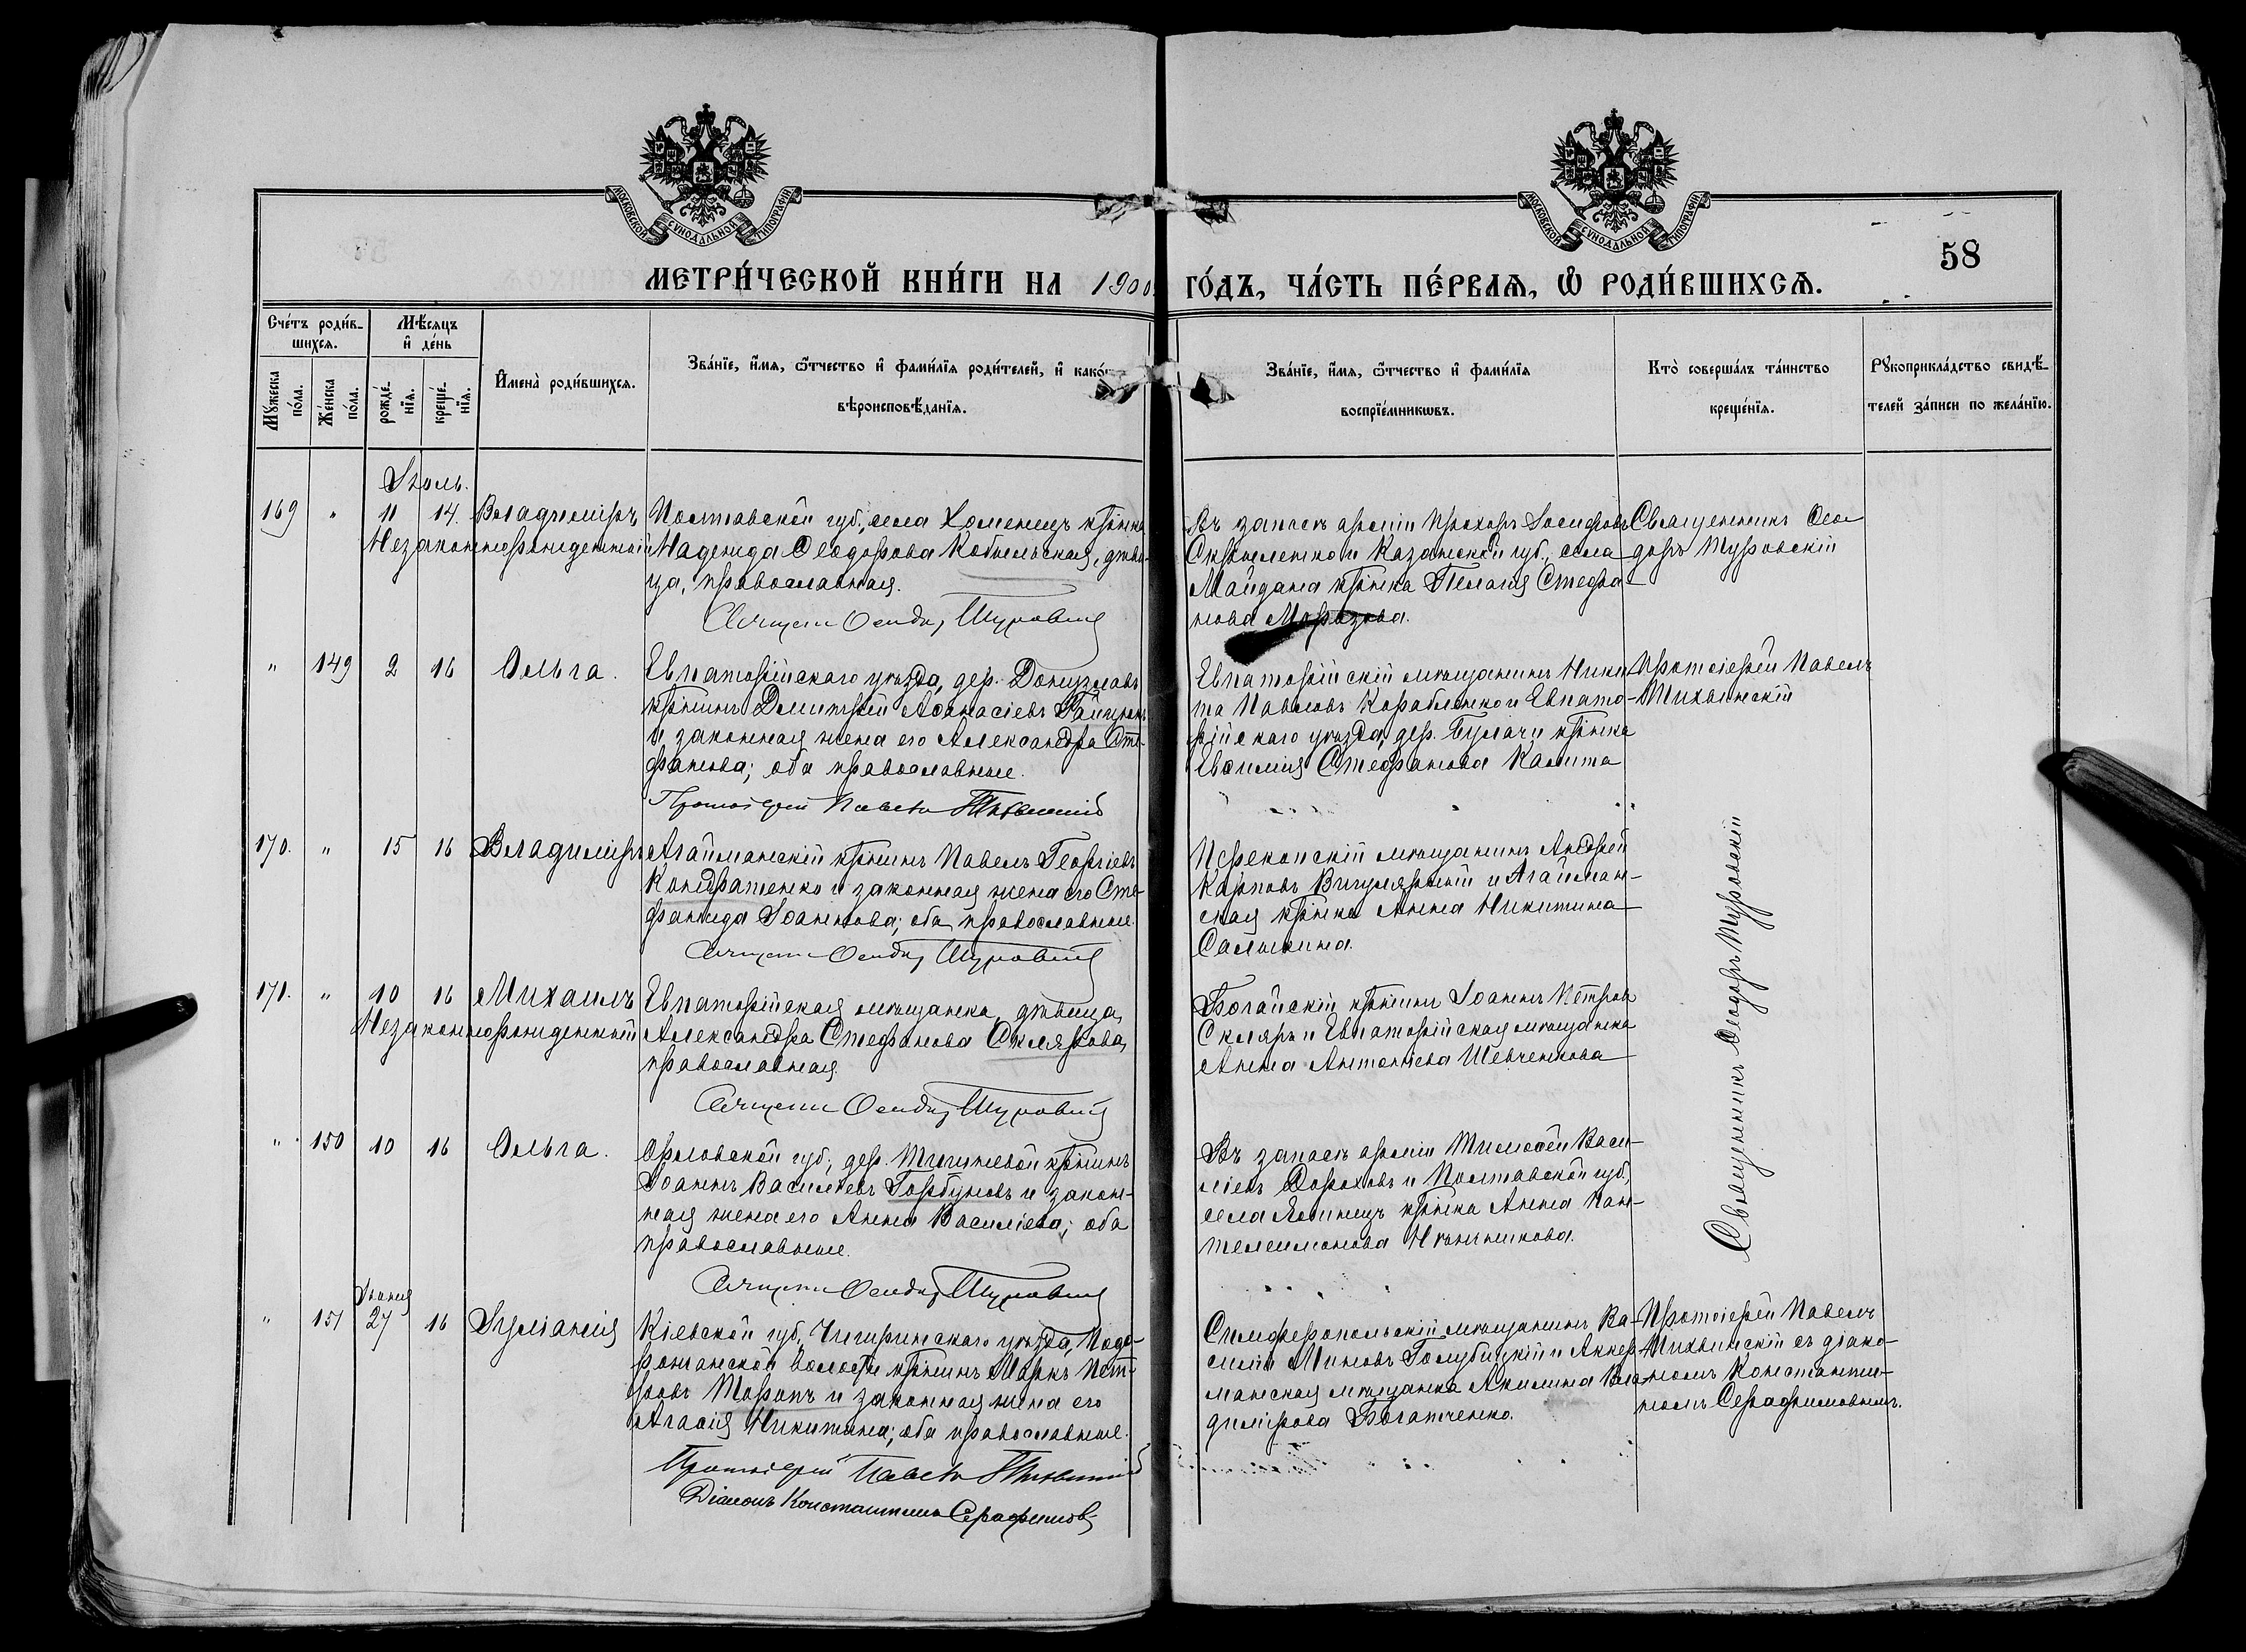 МОСКОВСКОЙ СѴНОДАЛЬНОЙ ТИПОГРАФІИ
МОСКОВСКОЙ СѴНОДАЛЬНОЙ ТИПОГРАФІИ
58
МЕТРИ́ЧЕСКОЙ КНИ́ГИ НА 1900 ГО́ДЪ, ЧА́СТЬ ПЕ́РВАѦ, Ѡ҆ РОДИ́ВШИХСѦ.
Сче́тъ роди́в-
шихсѧ.
Мꙋ́жеска по́ла.
Же́нска по́ла.
Мѣ́сѧцъ
и҆ де́нь
рожде́-
нїѧ.
креще́-
нїѧ.
И҆мена̀ роди́вшихсѧ.
Зва́нїе, и҆́мѧ, ѻ҆́тчество и҆ фами́лїѧ роди́телей, и҆ како́гѡ
вѣроисповѣ́данїѧ.
Зва́нїе, и҆́мѧ, ѻ҆́тчество и҆ фами́лїѧ
воспрїе́мникѡвъ.
Кто̀ соверша́лъ та́инство
креще́нїѧ.
Рꙋкоприкла́дство свидѣ́-
телей за́писи по жела́нїю.
Іюль.
169 " 11 14. Владиміръ
Незаконнорожденный
Полтавской губ., села Хоменецъ кр-нка
Надежда Ѳеодорова Кобыльская, дѣви-
ца, православная.
Въ запасѣ арміи Прохоръ Іосифовъ
и Казанской губ., села
Майдана кр-нка Пелагія Стефа-
нова Морозова.
Священникъ Ѳео-
доръ Туровскій
" 149 2 16 Ольга.
Евпаторійскаго уѣзда, дер. Донузлавъ
кр-нинъ Димитрій Аѳанасіевъ
и законная жена его Александра Сте-
фанова; оба православные.
Протоіерей Павелъ Тихвинскій
Евпаторійскій мѣщанинъ Ники-
та Павловъ Корабленко и Евпато-
рійскаго уѣзда, дер. кр-нка
Евѳимія Стефанова Калита
Протоіерей Павелъ
Тихвинскій
170. " 15 16 Владиміръ
Агайманскій кр-нинъ Павелъ Георгіевъ
Кондратенко и законная жена его Сте-
фанида Іоаннова; оба православные.
Священникъ Ѳеодоръ Туровскій
Перекопскій мѣщанинъ Андрей
Карповъ и Агайман-
ская кр-нка Анна Никитина
Салыкина.
Священникъ Ѳеодоръ Туровскій
171. " 10 16 Михаилъ
Незаконнорожденный
Евпаторійская мѣщанка, дѣвица,
Александра Стефанова Склярова,
православная.
Священникъ Ѳеодоръ Туровскій
Богайскій кр-нинъ Іоаннъ Петровъ
Скляръ и Евпаторійская мѣщанка
Анна Антоніева Шевченкова
" 150 10 16 Ольга.
Орловской губ., дер. кр-нинъ
Іоаннъ Василіевъ Горбуновъ и закон-
ная жена его Анна Василіева; оба
православные.
Священникъ Ѳеодоръ Туровскій
Въ запасѣ арміи Тимоѳей Васи-
ліевъ Дороховъ и Полтавской губ.,
села кр-нка Анна Пан-
телеимонова
Іюня
" 151 27 16 Іуліанія
Кіевской губ., Чигиринскаго уѣзда, Подо-
рожанской волости кр-нинъ Маркъ Пет-
ровъ Торопъ и законная жена его
Агафія Никитина; оба православные.
Протоіерей Павелъ Тихвинскій
Діаконъ Константинъ Серафимовъ
Симферопольскій мѣщанинъ Ва-
силій Миновъ Голубицкій и Аккер-
манская мѣщанка Акилина Вла-
димірова Богатченко.
Протоіерей Павелъ
Тихвинскій съ діако-
номъ Константи-
номъ Серафимовымъ.